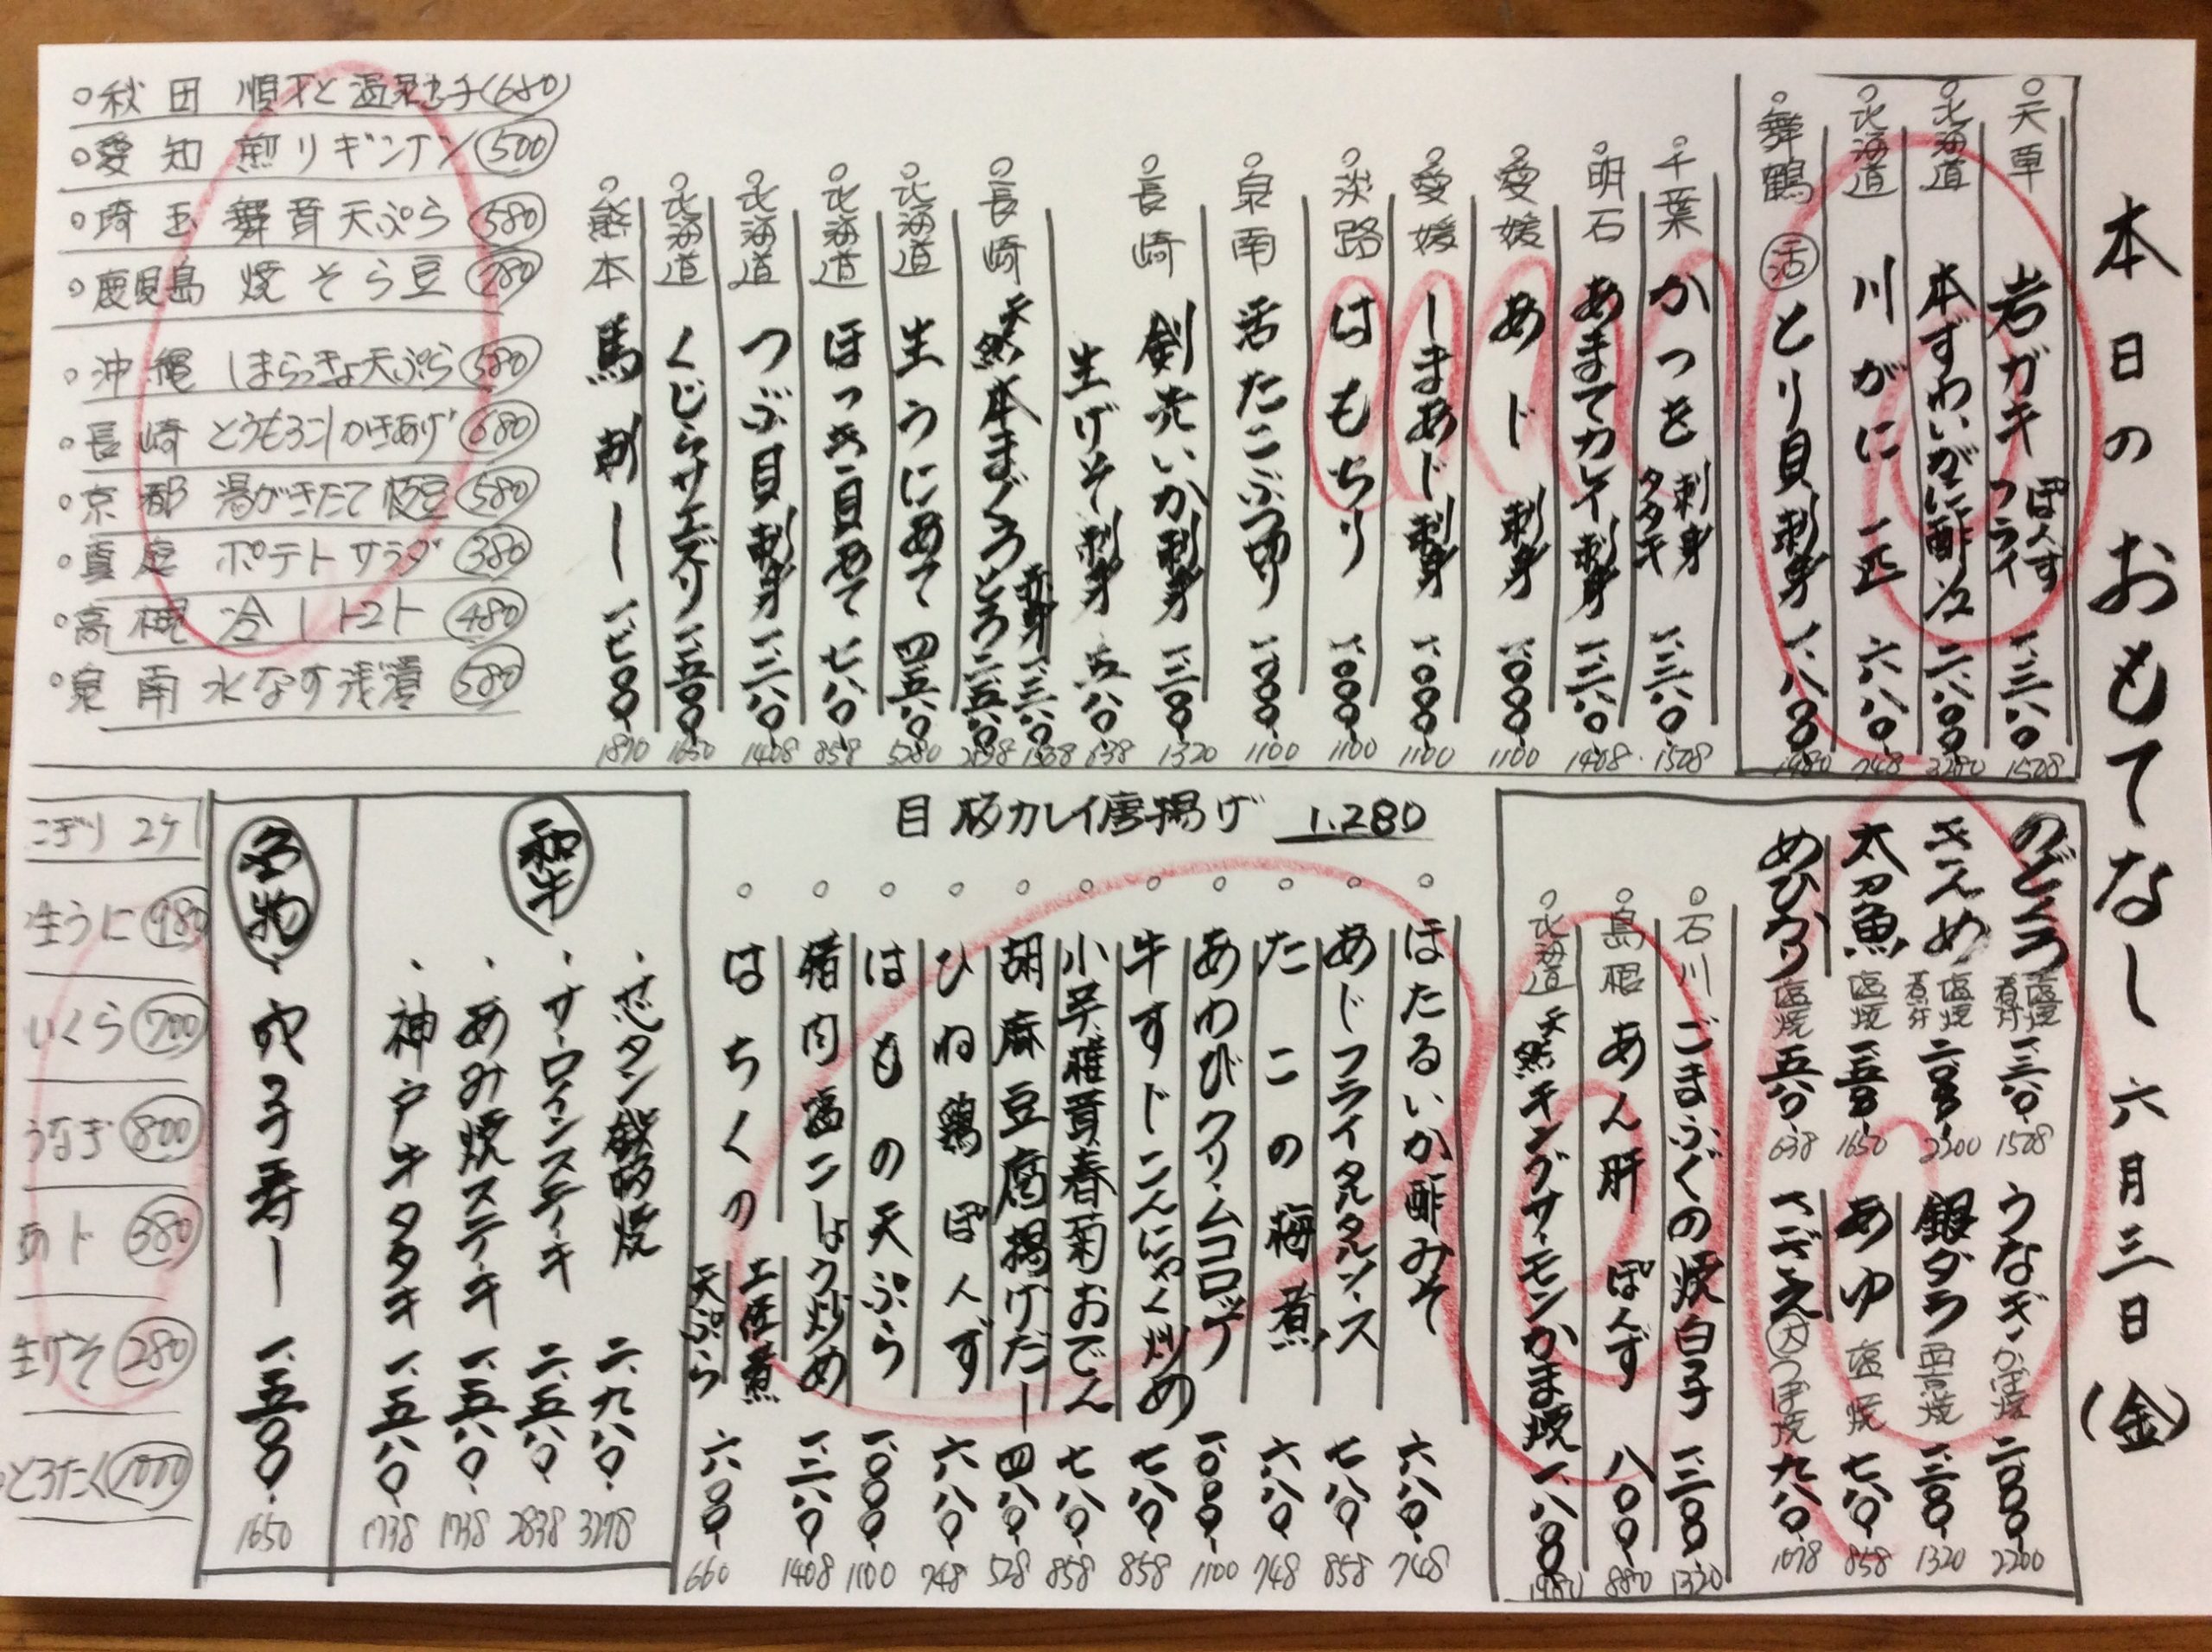 本日のおもてなし 六月三日(金)
○天草 岩ガキ ぽんず フライ 一、三八〇 1508
○北海道 本ずわいがに酢 二、九八〇 3280
○北海道 川がに 一匹 六八〇 748
○舞鶴 活 とり貝 刺身 一、八〇〇 1980
○千葉 かつを 刺身 タタキ 一、三八〇 1508
○明石 あまてカレイ 刺身 一、二八〇 1408
○愛媛 あじ 刺身 一、〇〇〇 1100
○愛媛 しまあじ 刺身 一、〇〇〇 1100
○淡路 はもちり 一、〇〇〇 1100
○泉南 活たこぶつ切り 一、〇〇〇 1100
○長崎 剣先いか 刺身 一、二〇〇 1320
生げそ 刺身 五八〇 638
○長崎 天然 本まぐろ 赤身 一、三八〇 とろ 二、五八〇 1538 2838
○北海道 生うにあて 四、八〇〇 5280
○北海道 ほっき貝あて 七八〇 858
○北海道 つぶ貝 刺身 一、二八〇 1408
○北海道 くじらサエズリ 一、五〇〇 1650
○熊本 馬刺し 一、七〇〇 1870
○秋田 順才と温泉玉子 680
○愛知 煎りギンナン 500
○埼玉 舞茸天ぷら 580
○鹿児島 焼そら豆
○沖縄 しまらっきょ天ぷら 580
○長崎 とうもろこしかきあげ 680
○京都 湯がきたて枝豆 580
○真庭 ポテトサラダ 380
○高槻 冷しトマト 480
○泉南 水なす浅漬 580
のどくろ 塩焼 煮付 一、三八〇 1508
きんめ 塩焼 煮付 二、〇〇〇 2200
太刀魚 塩焼 一、五〇〇 1650
めひかり 塩焼 五八〇 638
うなぎ かば焼 二、〇〇〇 2200
銀ダラ 西京焼 一、二〇〇 1320
あゆ 塩焼 七八〇 858
さざえ 大 つぼ焼 九八〇 1078
○石川 ごまふぐの焼白子 一、二〇〇 1320
○島根 あん肝 ぽんず 八〇〇 880
○北海道 天然キングサーモンかま焼 一、八〇〇 1980
目板カレイ唐揚げ 1.280
○ほたるいか酢みそ 六八〇 748
○あじフライタルタルソース 七八〇 858
○たこの梅煮 六八〇 748
○あわびクリームコロッケ 一、〇〇〇 1100
○牛すじこんにゃく炒め 七八〇 858
○小芋椎茸春菊おでん 七八〇 858
○胡麻豆腐揚げだし 四八〇 528
○ひね鶏ぽんず 六八〇 748
○はもの天ぷら 一、〇〇〇 1100
○猪肉塩こしょう炒め 一、二八〇 1408
○はちくの 土佐煮 天ぷら 六〇〇 660
和牛
・芯タン鉄板焼 二、九八〇 3278
・サーロインステーキ 二、五八〇 2838
・あみ焼ステーキ 一、五八〇 1738
・神戸牛タタキ 一、五八〇 1738
名物
・穴子寿し 一、五〇〇 1650
にぎり 2ケ
生うに 980
いくら 700
うなぎ 800
あじ 380
生げそ 280
とろたく 1000